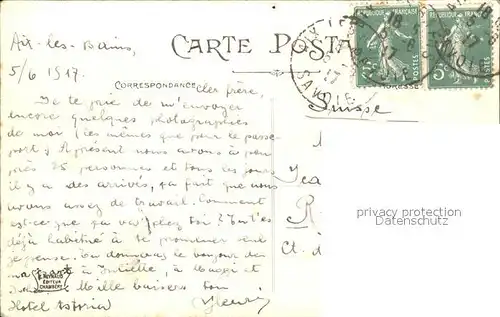 Aix-les-Bains,
5/6 1917.
CARTE POSTALE
CORRESPONDANCE
ADRESSE
REPUBLIQUE FRANCAISE
POSTES
REPUBLIQUE FRANCAISE
5
SAVOIE
Suisse
Cher frère,
Je te prie de m'envoyer
encore quelques photographies
de moi (les mêmes que pour le passe-
port). A présent nous avons à peu
près 25 personnes et tous les jours
il y a des arrivés, ça fait que nous
avons assez de travail. Comment
est-ce que ça va chez toi? Tu t'es
déjà habitué à te promener seul
je pense. Tu donneras le bonjour de
ma part à Juliette, à Maggi et
Mille baisers ton
Hotel Astoria Henri
Jea
R.
Ct. d
privacy protection
watermark
EDITEUR
CHAMBERY